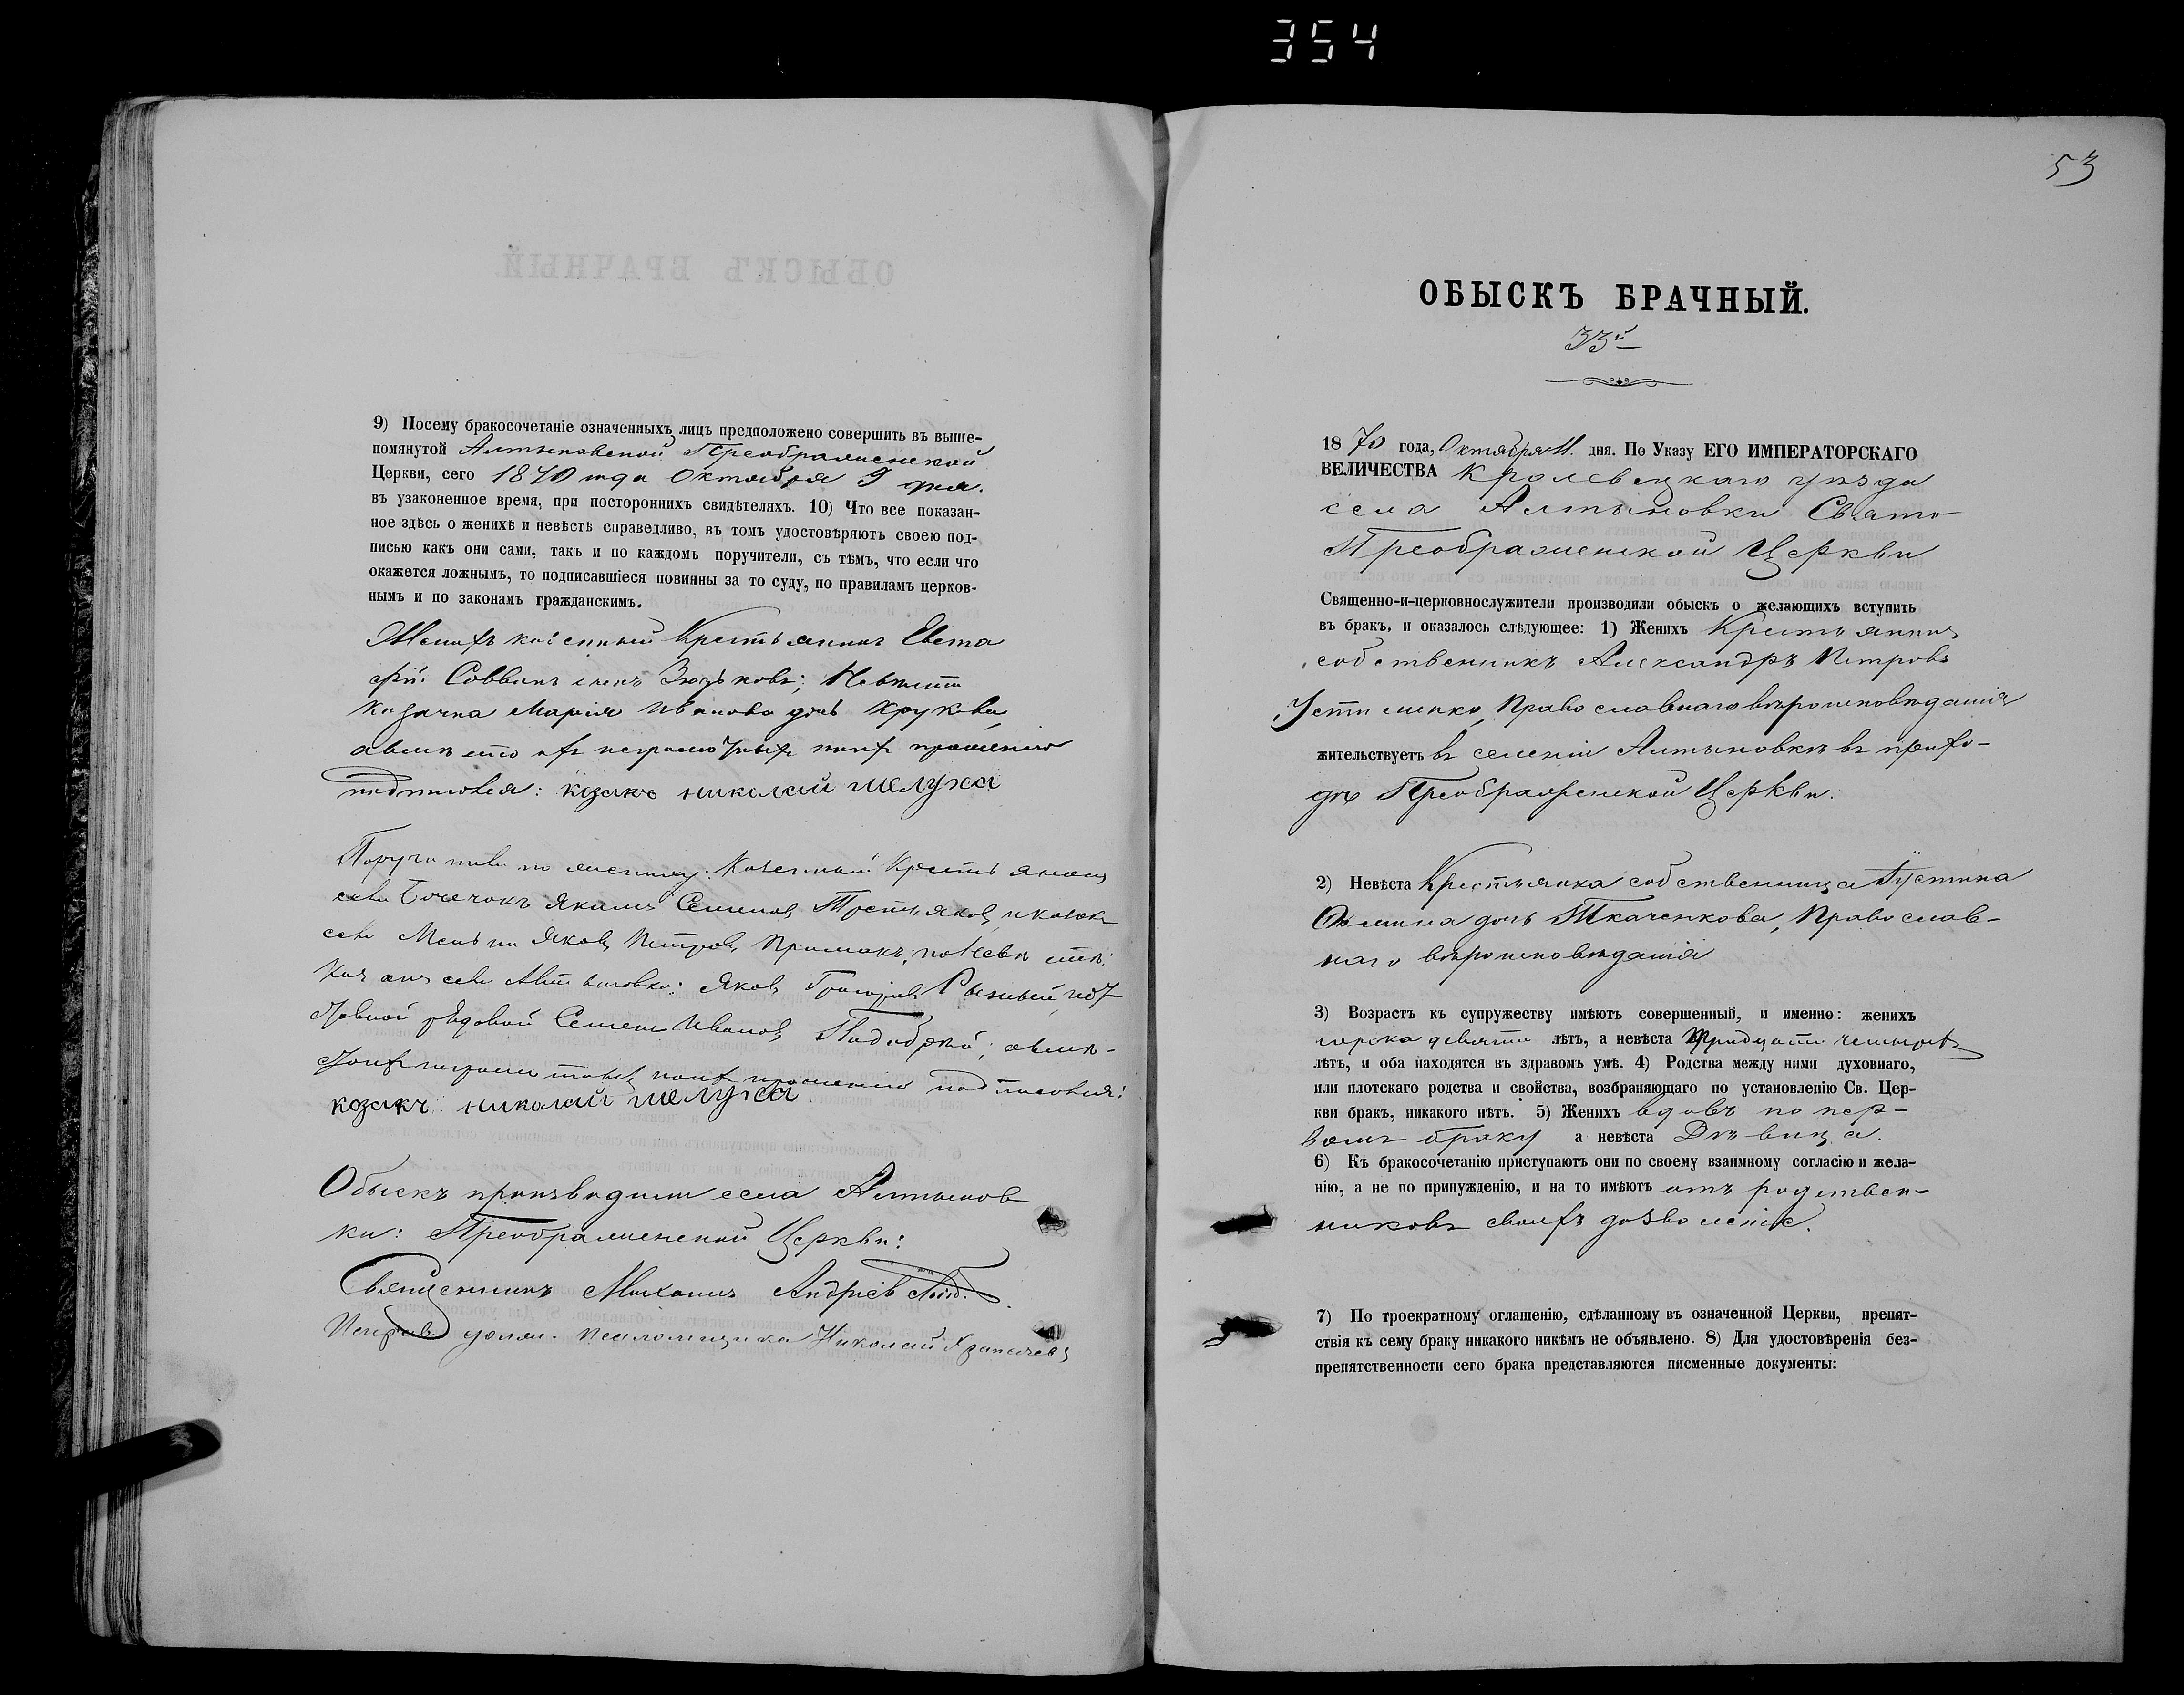 354
9) Посему бракосочетаніе означенныхъ лицъ предположено совершить въ выше-
помянутой Алтыновской Преображенской
Церкви, сего 1870 года Октября 9 дня.
въ узаконенное время, при постороннихъ свидѣтеляхъ. 10) Что все показан-
ное здѣсь о женихѣ и невѣстѣ справедливо, въ томъ удостовѣряютъ своею под-
писью какъ они сами, такъ и по каждомъ поручители, съ тѣмъ, что если что
окажется ложнымъ, то подписавшіеся повинны за то суду, по правиламъ церков-
нымъ и по законамъ гражданскимъ.
Женихъ казенный Крестьянинъ Евста
фій Саввинъ сынъ Зюзьковъ; Невѣста
Козачка Марія Иванова дочь Крукова
а вмѣсто ихъ неграмотныхъ по ихъ прошенію
подписовся: козакъ николай шелуха
Поручители по женихѣ: Казенный Крестьянинъ
села Бочечокъ Якимъ Семеновъ Третьяковъ, и козакъ
села Яковъ Петровъ Примакъ; по Невѣстѣ:
Козакъ села Алтыновки: Яковъ Григорьевъ
рядовой Семенъ Ивановъ а вмѣ-
по ихъ прошенію подписовся:
козакъ николай шелуха
Обыскъ производили села Алтынов
ки: Преображенской Церкви:
Священникъ Михаилъ Андріев
Исправ. долж. Псаломщика Николай
53
ОБЫСКЪ БРАЧНЫЙ.
33й
1870 года, Октября 11. дня. По Указу ЕГО ИМПЕРАТОРСКАГО
ВЕЛИЧЕСТВА Кролевецкаго уѣзда
села Алтыновки Свято
Преображенской Церкви
Священно-и-церковнослужители производили обыскъ о желающихъ вступить
въ бракъ, и оказалось слѣдующее: 1) Женихъ Крестьянинъ
собственникъ Александръ Петровъ
Устименко, Православнаго вѣроисповѣданія
жительствуетъ въ селеніи Алтыновкѣ въ прихо-
дѣ Преображенской Церкви.
2) Невѣста Крестьянка собственница Іустина
Ѳомина дочь Ткаченкова, Православ-
наго вѣроисповѣданія
3) Возрастъ къ супружеству имѣютъ совершенный, и именно: женихъ
сорока девяти лѣтъ, а невѣста тридцати четырехъ
лѣтъ, и оба находятся въ здравомъ умѣ. 4) Родства между ними духовнаго,
или плотскаго родства и свойства, возбраняющаго по установленію Св. Цер-
кви бракъ, никакого нѣтъ. 5) Женихъ вдовъ по пер-
вомъ браку а невѣста Дѣвица.
6) Къ бракосочетанію приступаютъ они по своему взаимному согласію и жела-
нію, а не по принужденію, и на то имѣютъ отъ родствен-
никовъ своихъ дозволеніе.
7) По троекратному оглашенію, сдѣланному въ означенной Церкви, препят-
ствія къ сему браку никакого никѣмъ не объявлено. 8) Для удостовѣренія без-
препятственности сего брака представляются писменные документы: